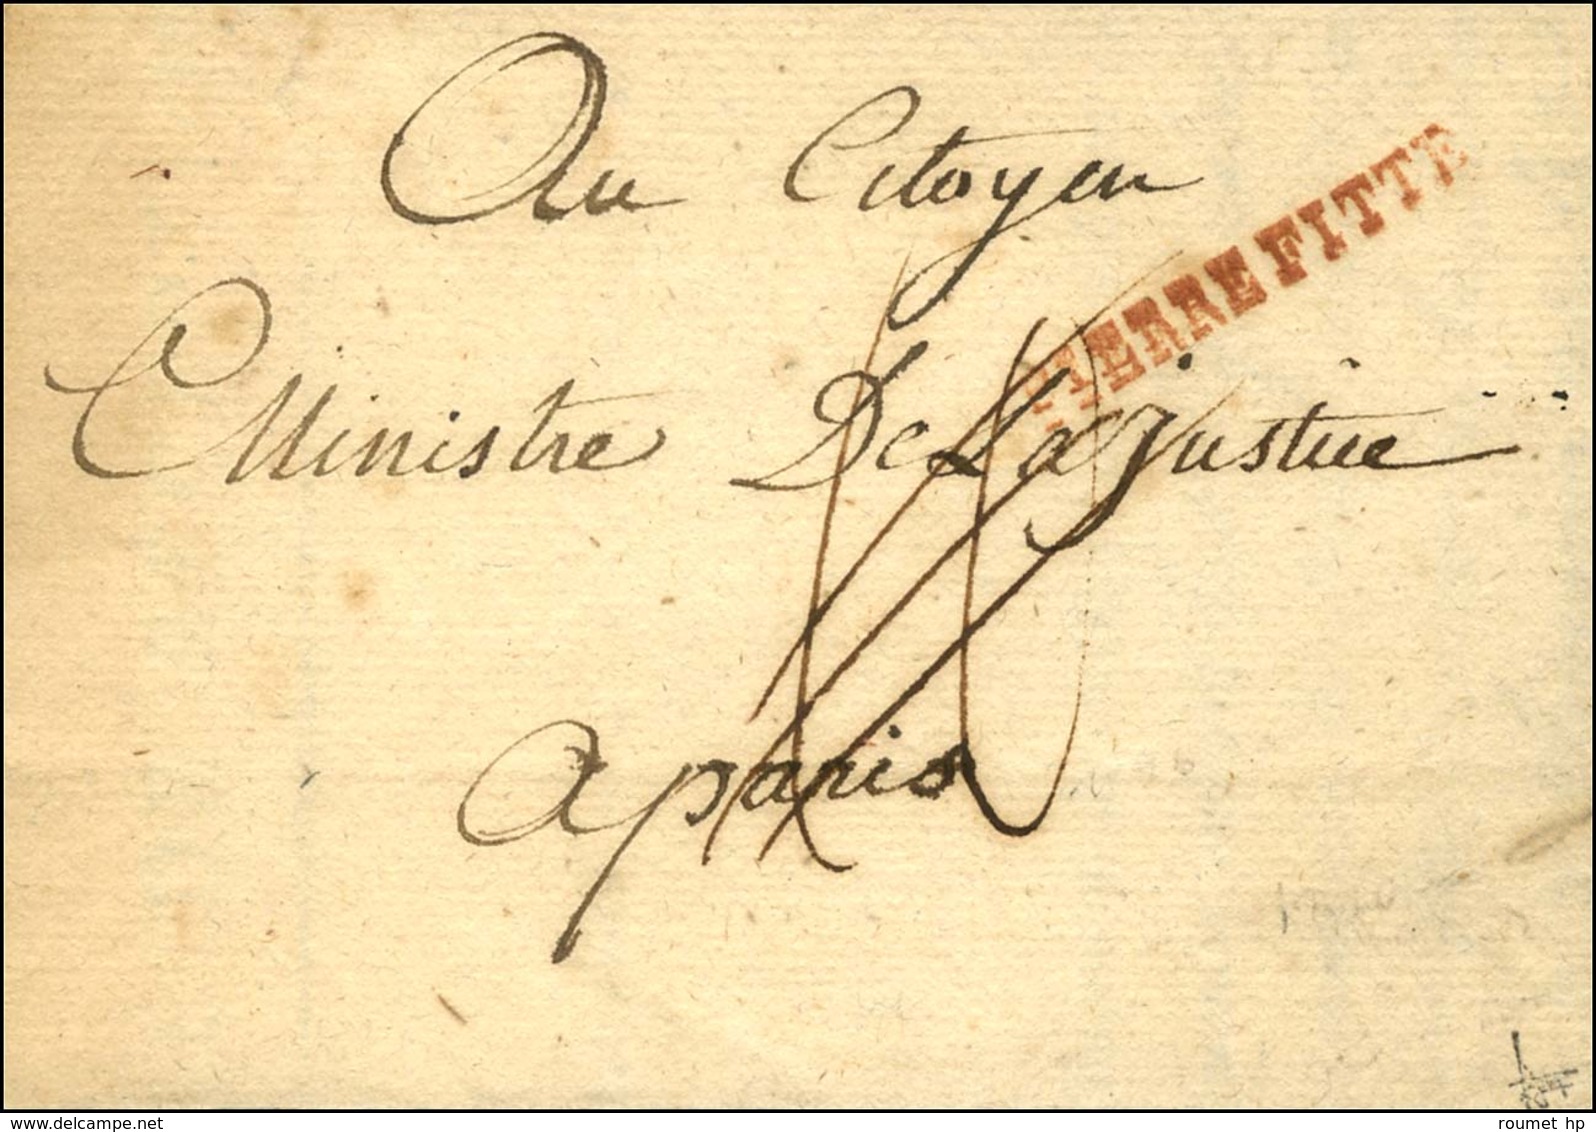 Au Citoyen
PIERREFITTE
Ministre De La justice
a paris
delcampe.net
roumet hp